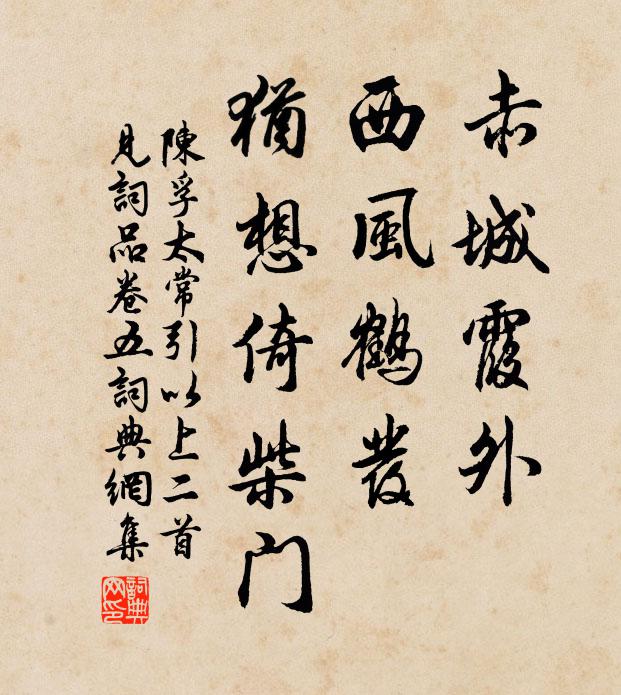 赤城霞外
西風鶴發
猶想倚柴門
陳孚太常引以上二首
見詞品卷五詞典網集
詞典
网印